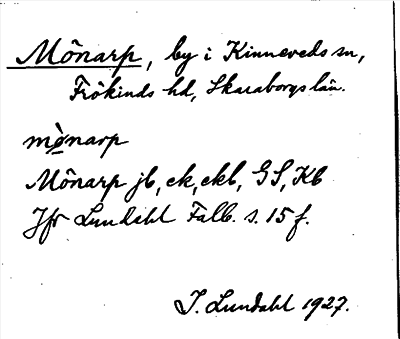 Mönarp, by i Kinneveds sn,
Frökinds hd, Skaraborgs län.
mönarp
Mönarp jb, ek, ekb, GS, Kb
Jfr Lundahl Falb. s. 15 f.
I. Lundahl 1927.